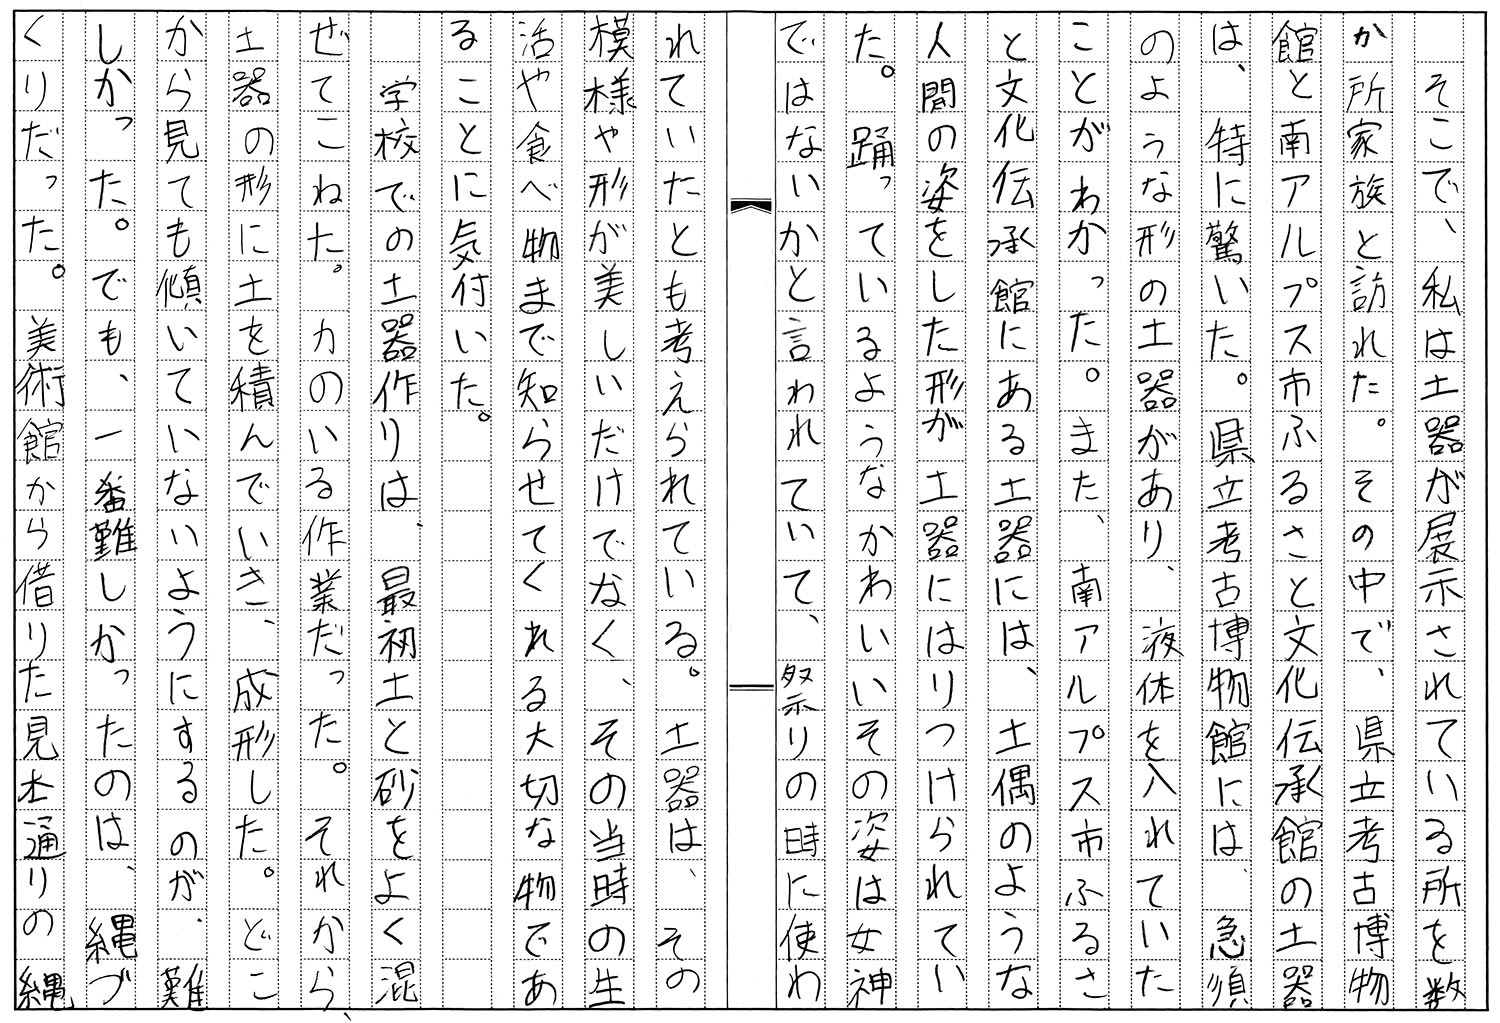 そこで、私は土器が展示されている所を数
か所家族と訪れた。その中で、県立考古博物
館と南アルプス市ふるさと文化伝承館の土器
は、特に驚いた。県立考古博物館には、急須
のような形の土器があり、液体を入れていた
ことがわかった。また、南アルプス市ふるさ
と文化伝承館にある土器には、土偶のような
人間の姿をした形が土器にはりつけられてい
た。踊っているようなかわいいその姿は女神
ではないかと言われていて、祭りの時に使わ
れていたとも考えられている。土器は、その
模様や形が美しいだけでなく、その当時の生
活や食べ物まで知らせてくれる大切な物であ
ることに気付いた。
　学校での土器作りは、最初土と砂をよく混
ぜてこねた。力のいる作業だった。それから、
土器の形に土を積んでいき、成形した。どこ
から見ても傾いていないようにするのが、難
しかった。でも、一番難しかったのは、縄づ
くりだった。美術館から借りた見本通りの縄